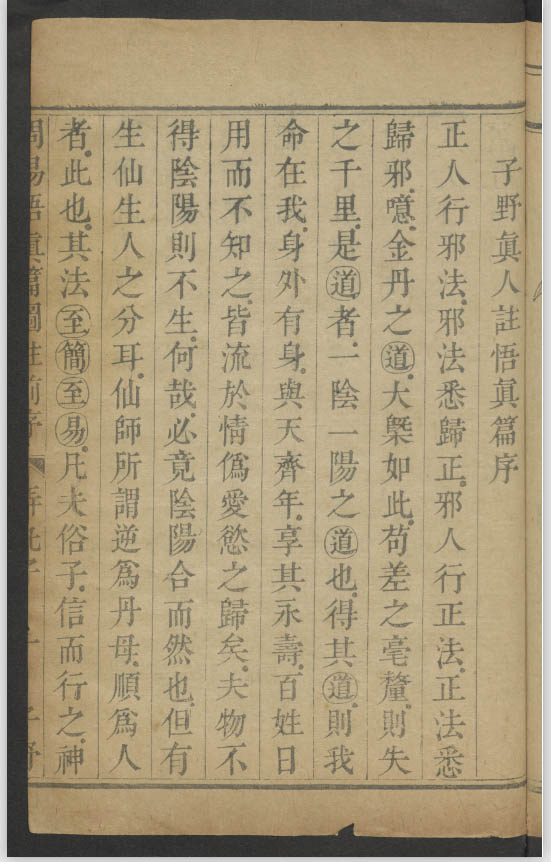 子野眞人註悟眞篇序
正人行邪法邪法悉歸正邪人行正法正法悉
歸邪噫金丹之道大槩如此苟差之毫釐則失
之千里是道者一陰一陽之道也得其道則我
命在我身外有身與天齊年享其永壽百姓日
用而不知之皆流於情爲愛慾之歸矣夫物不
得陰陽則不生何哉必竟陰陽合而然也但有
生仙生人之分耳仙師所謂逆爲丹母順爲人
者此也其法至簡至易凡夫俗子信而行之神
周易悟眞篇圖註前序 子野